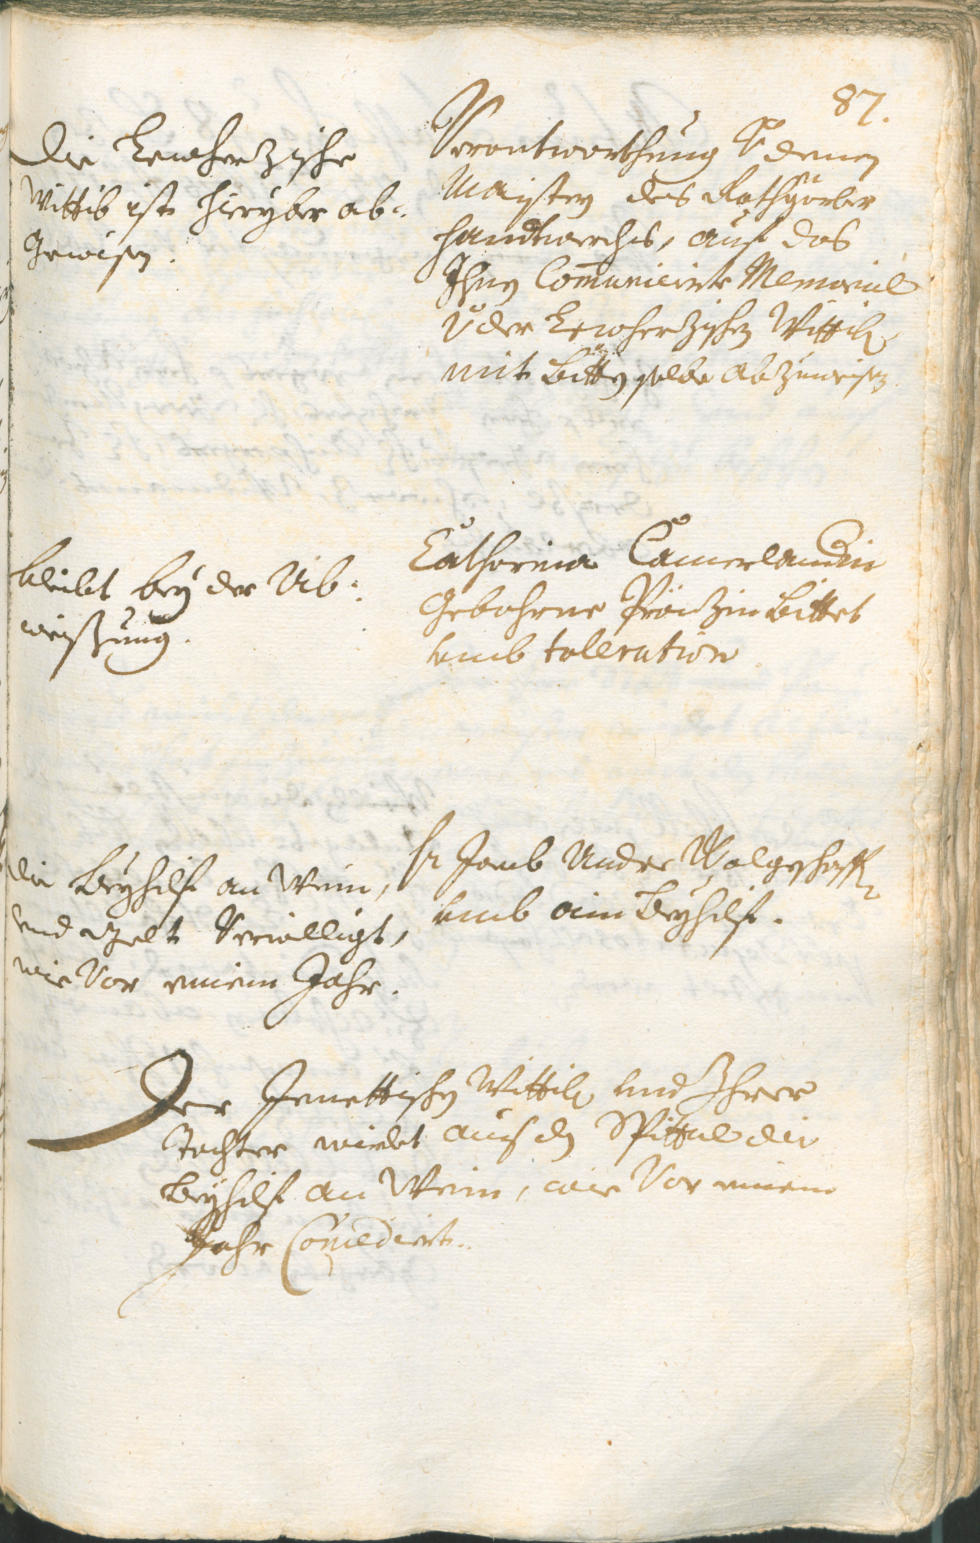 87.
Die Lewherzische
Wittib ist hieryber ab-
gewisen.
Verantworthung V denen
Maistern des Rothgörber
handtwerchs, auf das
Ihnen Com̄unicirte Memorial
V der Lewherzischen Wittib,
mit bitten selbe abzuweisen.
bleibt bey der Ab-
weißung.
Catharina Camerlandin
gebohrne bittet
umb toleration
die beyhilf an Wein,
und gelt verwilligt,
wie vor einem Jahr.
hr Jacob Andre
umb ain beyhilf.
Der Jenettischen Wittib und Ihrer
Tochter wirdet aus dem Spittal die
beyhilf an Wein, wie vor einem
Jahr Concediert.